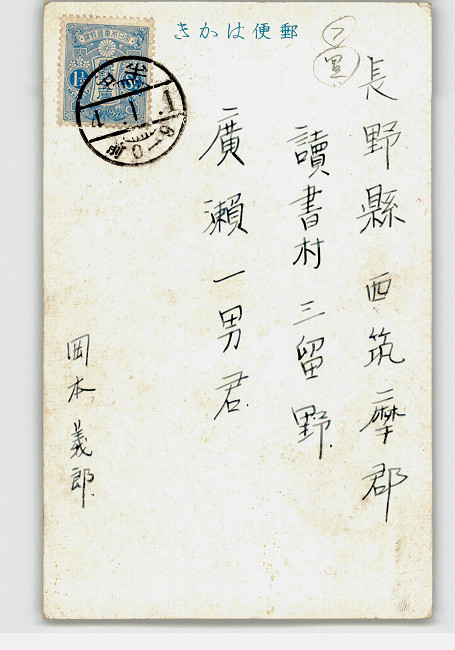 きかは便郵
長野縣西筑摩郡
讀書村三留野
廣瀬一男君
岡本義郎